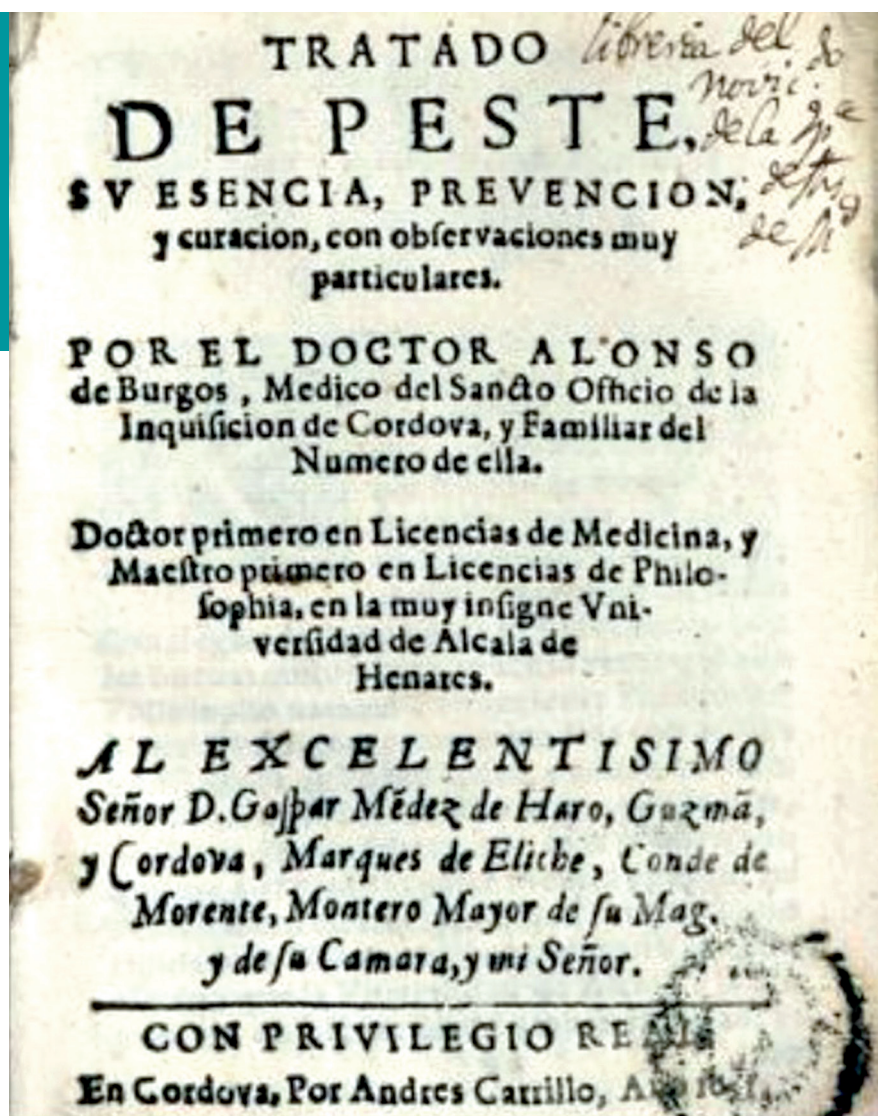 TRATADO
DE PESTE,
SV ESENCIA, PREVENCION,
y curacion, con obſervaciones muy
particulares.
POR EL DOCTOR ALONSO
de Burgos, Medico del Sancto Officio de la
Inquiſicion de Cordova, y Familiar del
Numero de ella.
Doctor primero en Licencias de Medicina, y
Maeſtro primero en Licencias de Philo-
ſophia, en la muy inſigne Vni-
verſidad de Alcala de
Henares.
AL EXCELENTISIMO
Señor D. Gaſpar Médez de Haro, Guzmã,
y Cordova, Marques de Eliche, Conde de
Morente, Montero Mayor de ſu Mag.
y de ſu Camara, y mi Señor.
CON PRIVILEGIO REAL
En Cordova, Por Andres Carrillo,
libreria del
novi.do
de la
de
de M.d